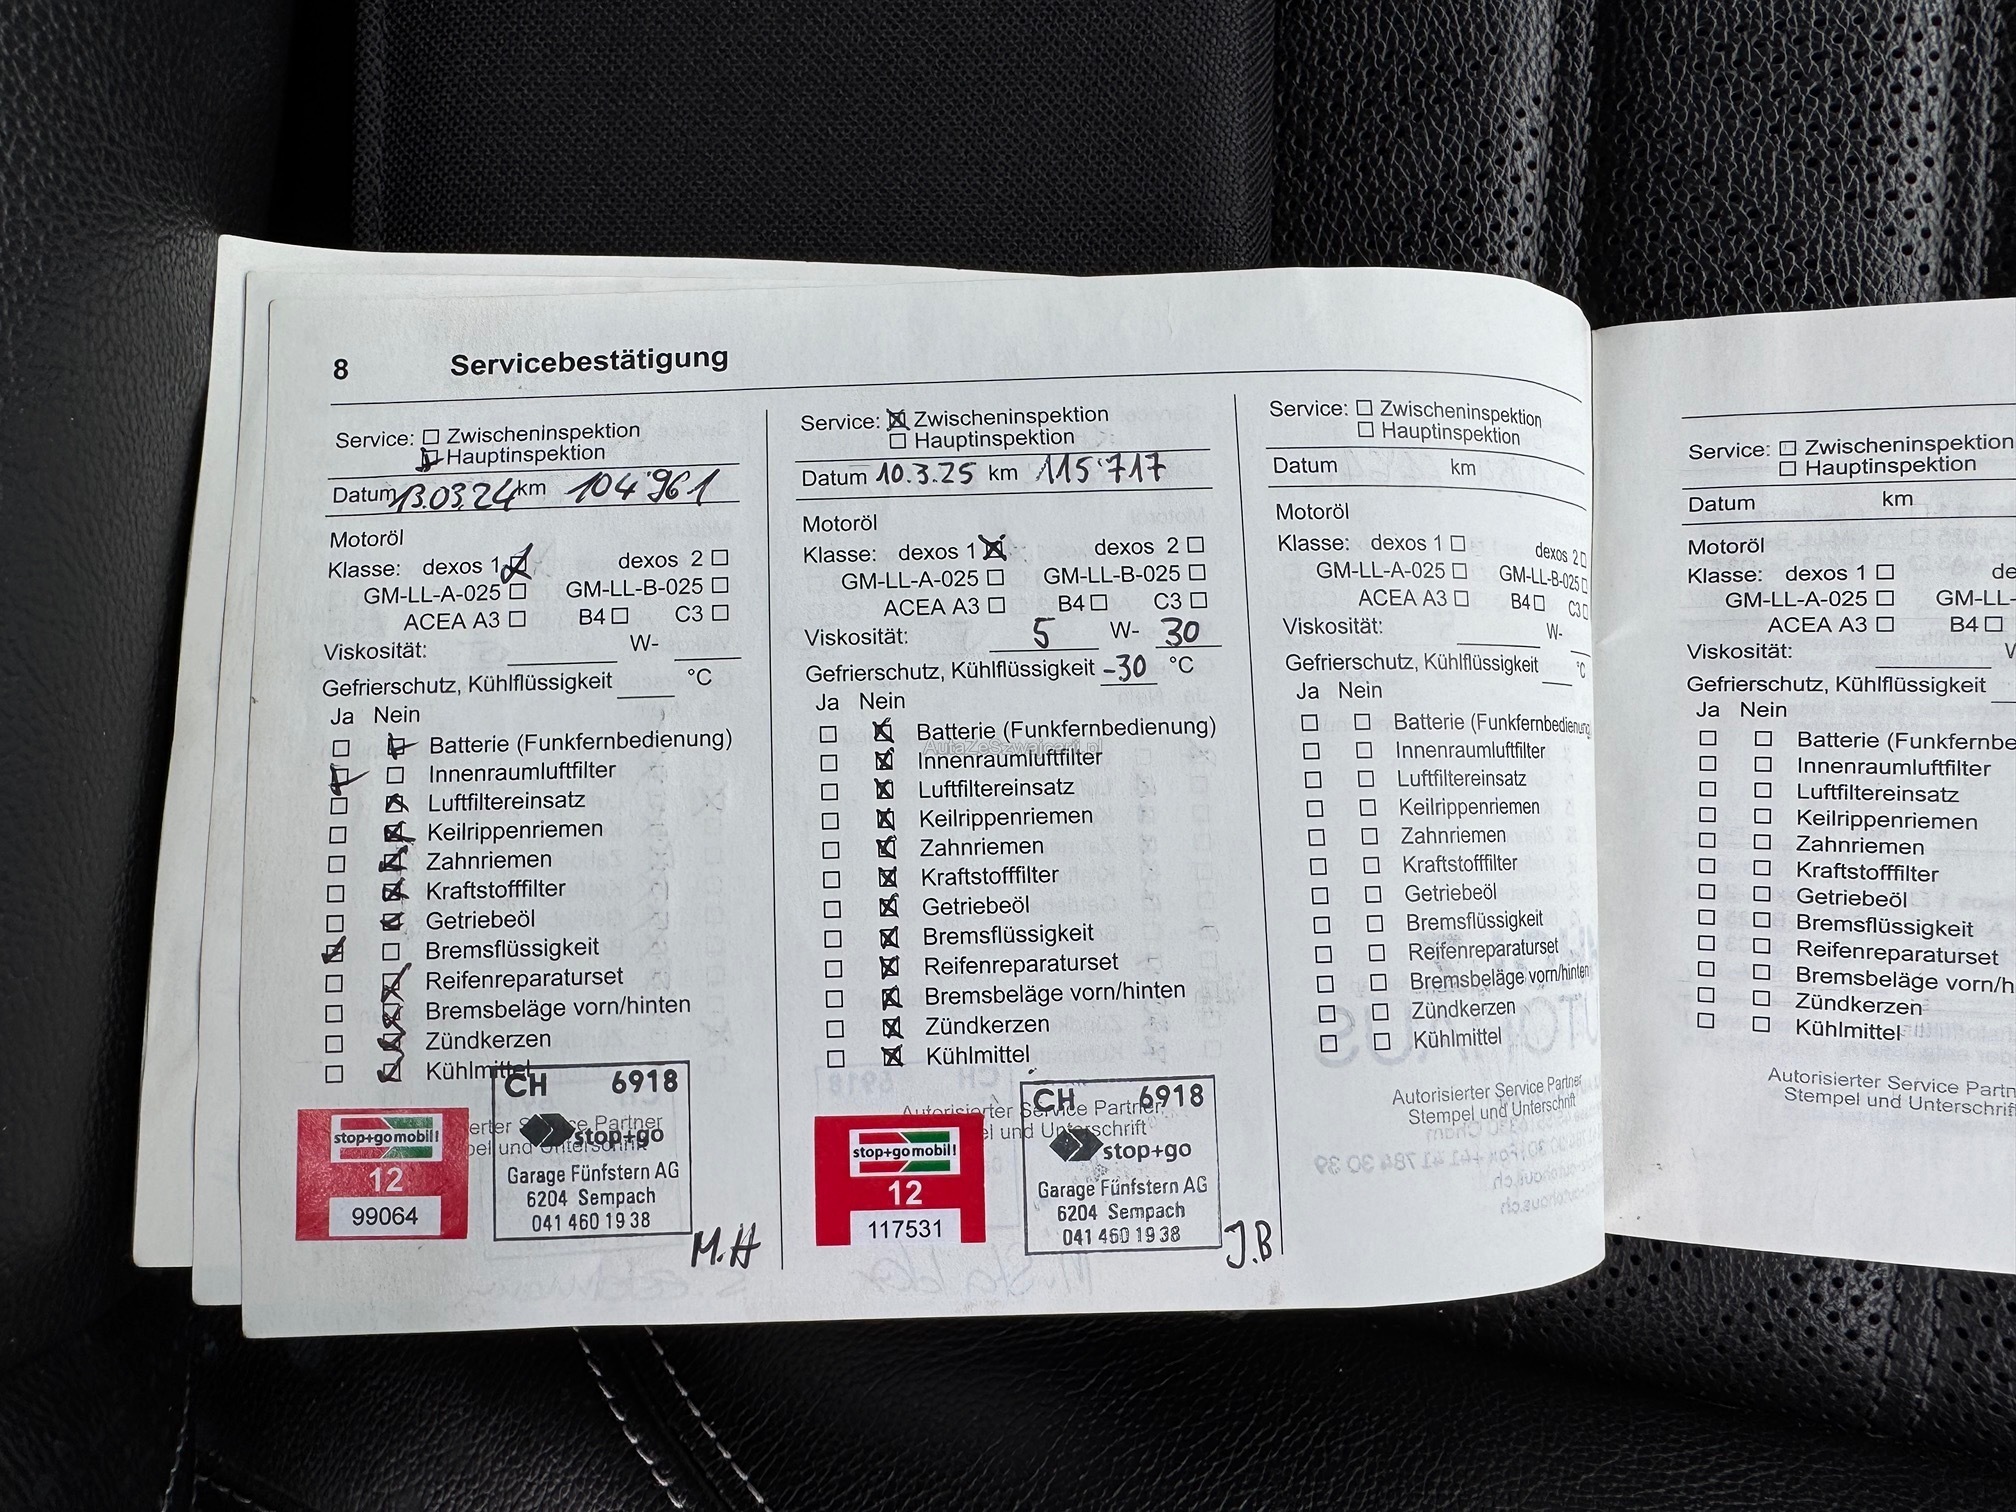 8 Servicebestätigung
Service: Zwischeninspektion
Hauptinspektion
Datum 13.03.24 km 104'961
Motoröl
Klasse: dexos 1 dexos 2
GM-LL-A-025 GM-LL-B-025
ACEA A3 B4 C3
Viskosität: W-
Gefrierschutz, Kühlflüssigkeit °C
Ja Nein
Batterie (Funkfernbedienung)
Innenraumluftfilter
Luftfiltereinsatz
Keilrippenriemen
Zahnriemen
Kraftstofffilter
Getriebeöl
Bremsflüssigkeit
Reifenreparaturset
Bremsbeläge vorn/hinten
Zündkerzen
Kühlmittel
CH 6918
stop+go
Garage Fünfstern AG
6204 Sempach
041 460 19 38
stop+go mobil!
12
99064
M.H
Service: Zwischeninspektion
Hauptinspektion
Datum 10.3.25 km 115'717
Motoröl
Klasse: dexos 1 dexos 2
GM-LL-A-025 GM-LL-B-025
ACEA A3 B4 C3
Viskosität: 5 W- 30
Gefrierschutz, Kühlflüssigkeit -30 °C
Ja Nein
Batterie (Funkfernbedienung)
AutaZeSzwajcarii.pl
Innenraumluftfilter
Luftfiltereinsatz
Keilrippenriemen
Zahnriemen
Kraftstofffilter
Getriebeöl
Bremsflüssigkeit
Reifenreparaturset
Bremsbeläge vorn/hinten
Zündkerzen
Kühlmittel
Autorisierter Service Partner
und Unterschrift
CH 6918
stop+go
Garage Fünfstern AG
6204 Sempach
041 460 19 38
stop+go mobil!
12
117531
J.B
Service: Zwischeninspektion
Hauptinspektion
Datum km
Motoröl
Klasse: dexos 1 dexos 2
GM-LL-A-025 GM-LL-B-025
ACEA A3 B4 C3
Viskosität: W-
Gefrierschutz, Kühlflüssigkeit °C
Ja Nein
Batterie (Funkfernbedienung)
Innenraumluftfilter
Luftfiltereinsatz
Keilrippenriemen
Zahnriemen
Kraftstofffilter
Getriebeöl
Bremsflüssigkeit
Reifenreparaturset
Bremsbeläge vorn/hinten
Zündkerzen
Kühlmittel
Autorisierter Service Partner
Stempel und Unterschrift
Service: Zwischeninspektion
Hauptinspektion
Datum km
Motoröl
Klasse: dexos 1 de
GM-LL-A-025 GM-LL-
ACEA A3 B4
Viskosität:
Gefrierschutz, Kühlflüssigkeit
Ja Nein
Batterie (Funkfernbe
Innenraumluftfilter
Luftfiltereinsatz
Keilrippenriemen
Zahnriemen
Kraftstofffilter
Getriebeöl
Bremsflüssigkeit
Reifenreparaturset
Bremsbeläge vorn/h
Zündkerzen
Kühlmittel
Autorisierter Service Partn
Stempel und Unterschrif